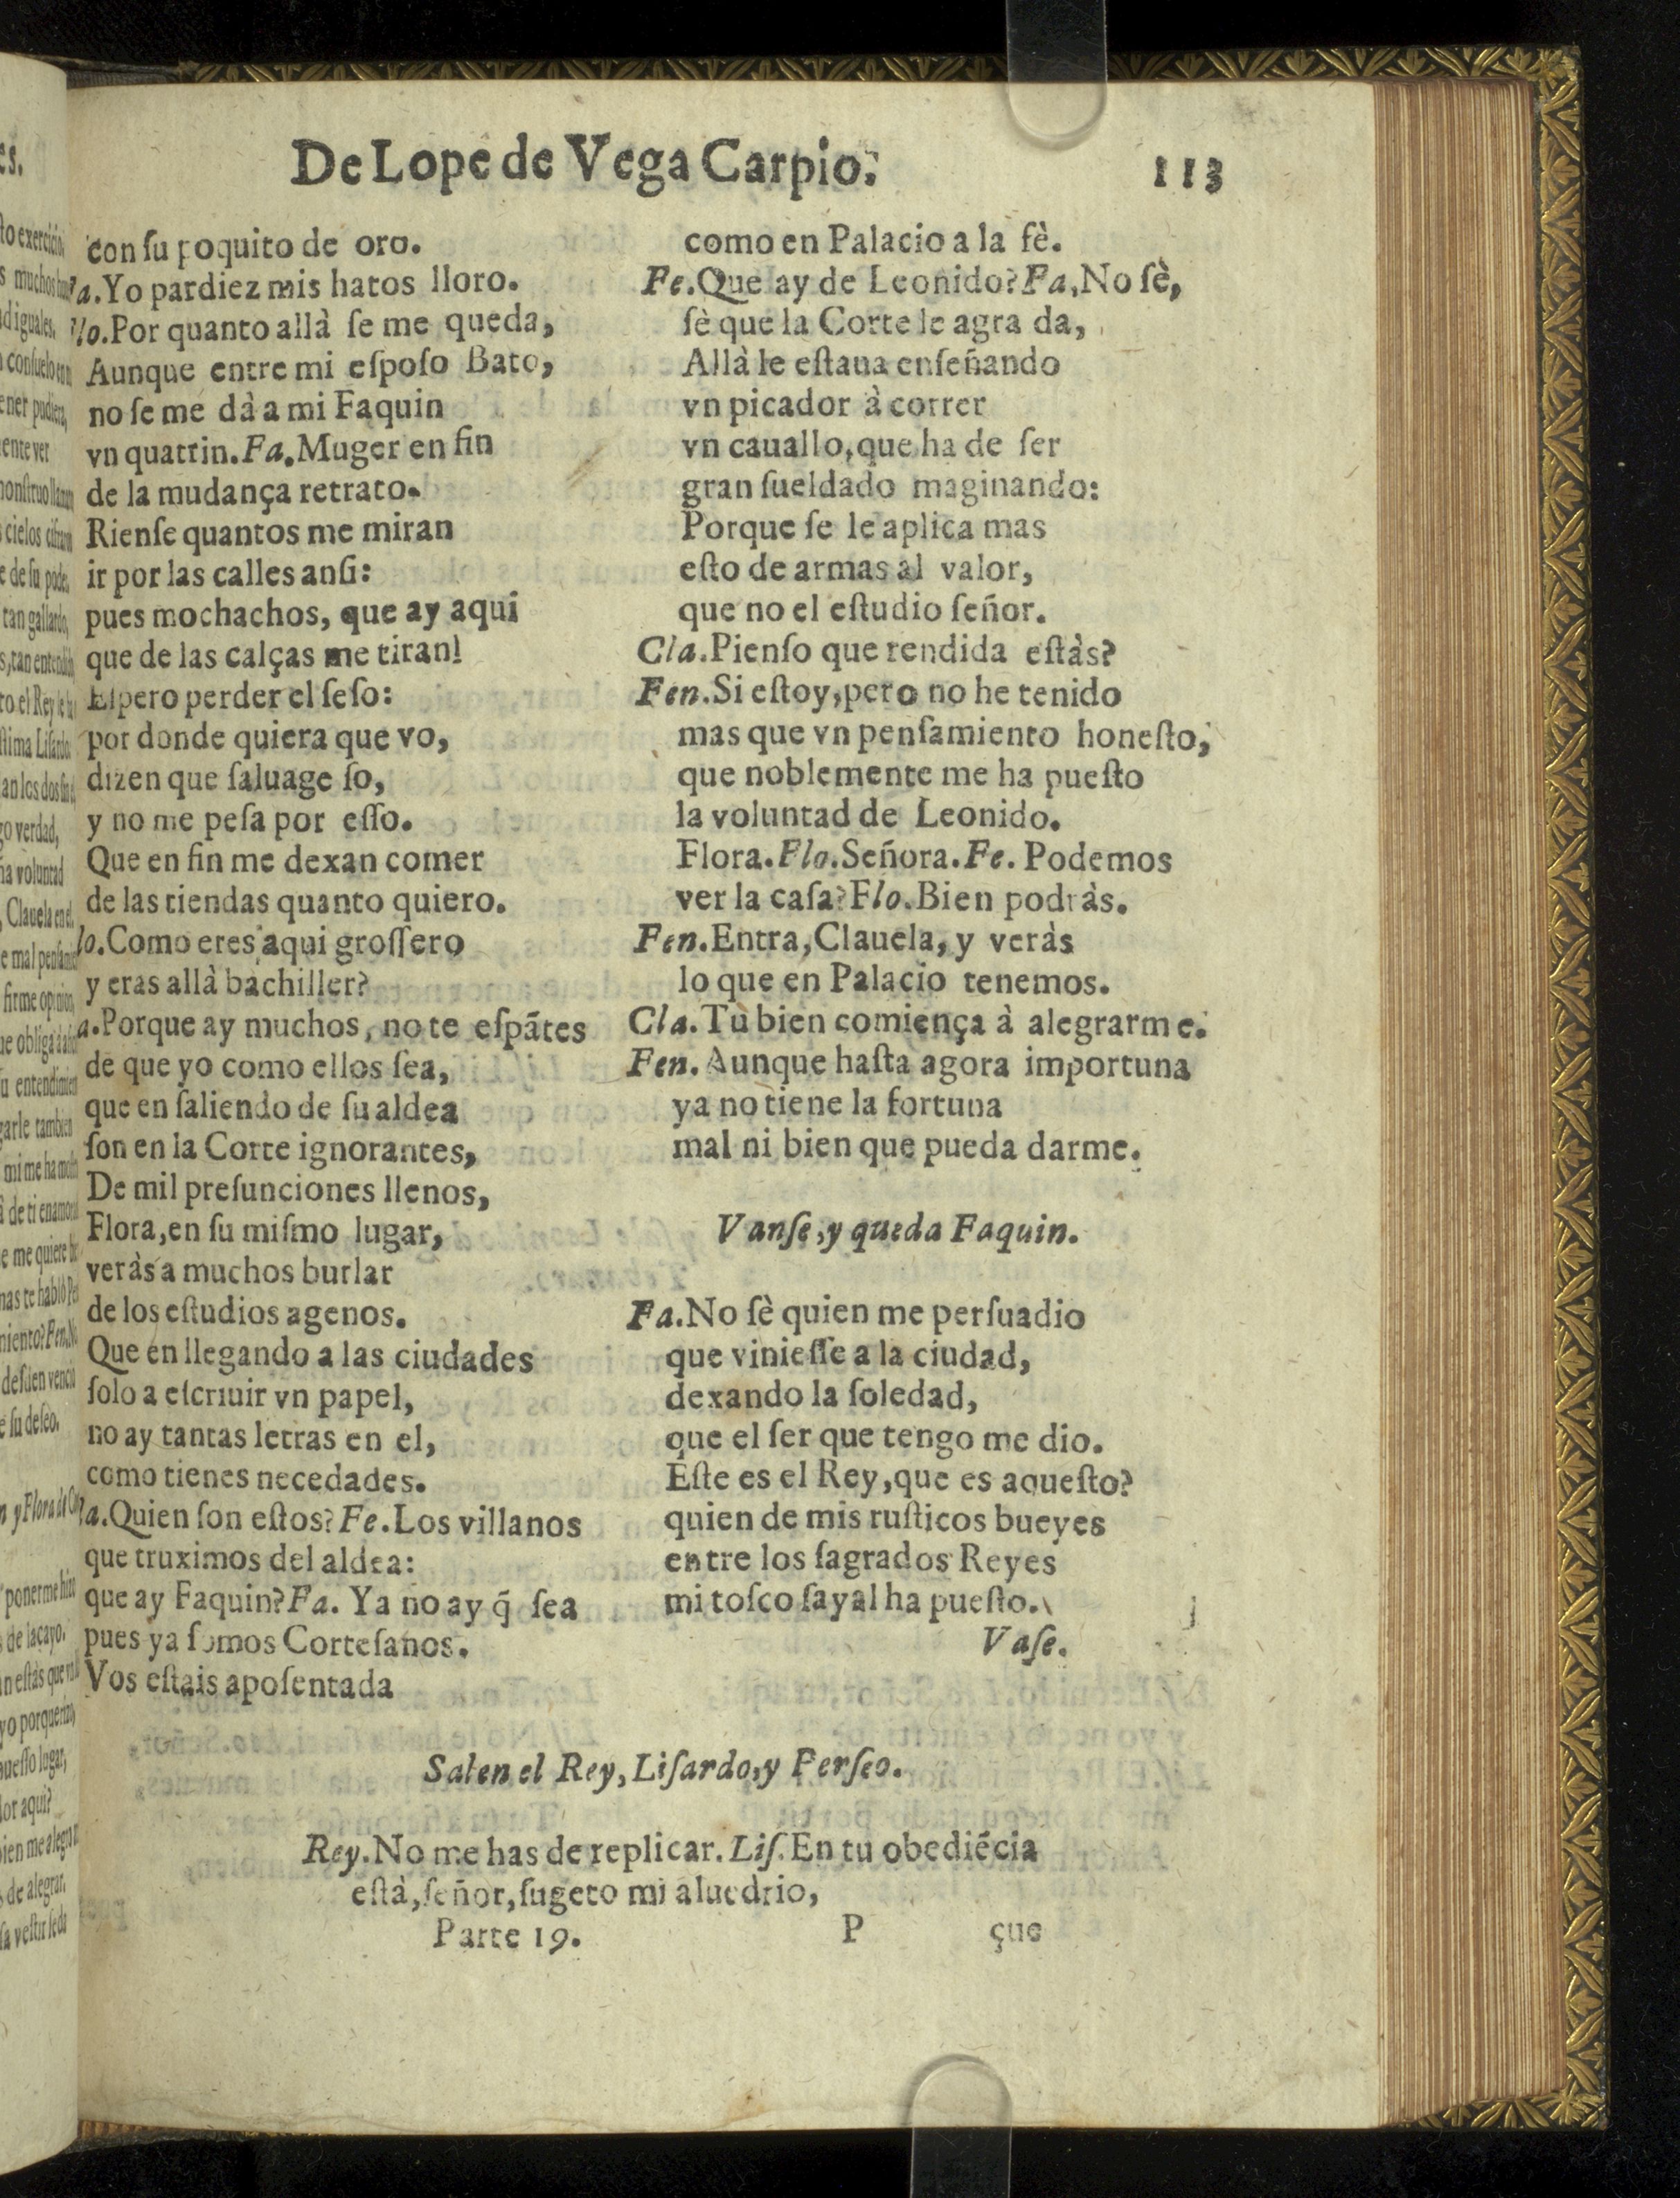 De Lope de Vega Carpio. 113
con su poquito de oro.
Fa.Yo pardiez mis hatos lloro.
Flo.Por quanto allà ſe me queda,
Aunque entre mi eſpoſo Bato,
no ſe me dà a mi Faquin
vn quattin.Fa.Muger en fin
de la mudança retrato.
Rienſe quantos me miran
ir por las calles anſi:
pues mochachos, que ay aqui
que de las calças me tiran!
Eſpero perder el ſeſo:
por donde quiera que vo,
dizen que ſaluage ſo,
y no me peſa por eſſo.
Que en fin me dexan comer
de las tiendas quanto quiero.
lo.Como eres aqui groſſero
y eras allà bachiller?
a.Porque ay muchos, no te eſpãtes
de que yo como ellos ſea,
que en ſaliendo de ſu aldea
ſon en la Corte ignorantes,
De mil preſunciones llenos,
Flora,en ſu miſmo lugar,
veràs a muchos burlar
de los eſtudios agenos.
Que en llegando a las ciudades
ſolo a eſcriuir vn papel,
no ay tantas letras en el,
como tienes necedades.
la.Quien ſon eſtos?Fe.Los villanos
que truximos del aldea:
que ay Faquin?Fa. Ya no ay q̃ ſea
pues ya ſomos Corteſanos.
Vos eſtais apoſentada
como en Palacio a la fè.
Fe.Que ay de Leonido?Fa.No ſè,
ſè que la Corte le agra da,
Allà le eſtaua enſeñando
vn picador à correr
vn cauallo,que ha de ſer
gran ſueldado maginando:
Porque ſe le aplica mas
eſto de armas al valor,
que no el eſtudio ſeñor.
Cla.Pienſo que rendida eſtàs?
Fen.Si eſtoy,pero no he tenido
mas que vn penſamiento honeſto,
que noblemente me ha pueſto
la voluntad de Leonido.
Flora.Flo.Señora.Fe. Podemos
ver la caſa?Flo.Bien podràs.
Fen.Entra,Clauela, y veràs
lo que en Palacio tenemos.
Cla.Tù bien comiença à alegrarme.
Fen. Aunque haſta agora importuna
ya no tiene la fortuna
mal ni bien que pueda darme.
Vanſe,y queda Faquin.
Fa.No ſè quien me perſuadio
que vinieſſe a la ciudad,
dexando la ſoledad,
que el ſer que tengo me dio.
Eſte es el Rey,que es aqueſto?
quien de mis ruſticos bueyes
entre los ſagrados Reyes
mi toſco ſayal ha pueſto.
Vaſe.
Salen el Rey, Liſardo,y Perſeo.
Rey.No me has de replicar.Liſ.En tu obediẽcia
eſtà,ſeñor,ſugeto mi aluedrio,
Parte 19. P que